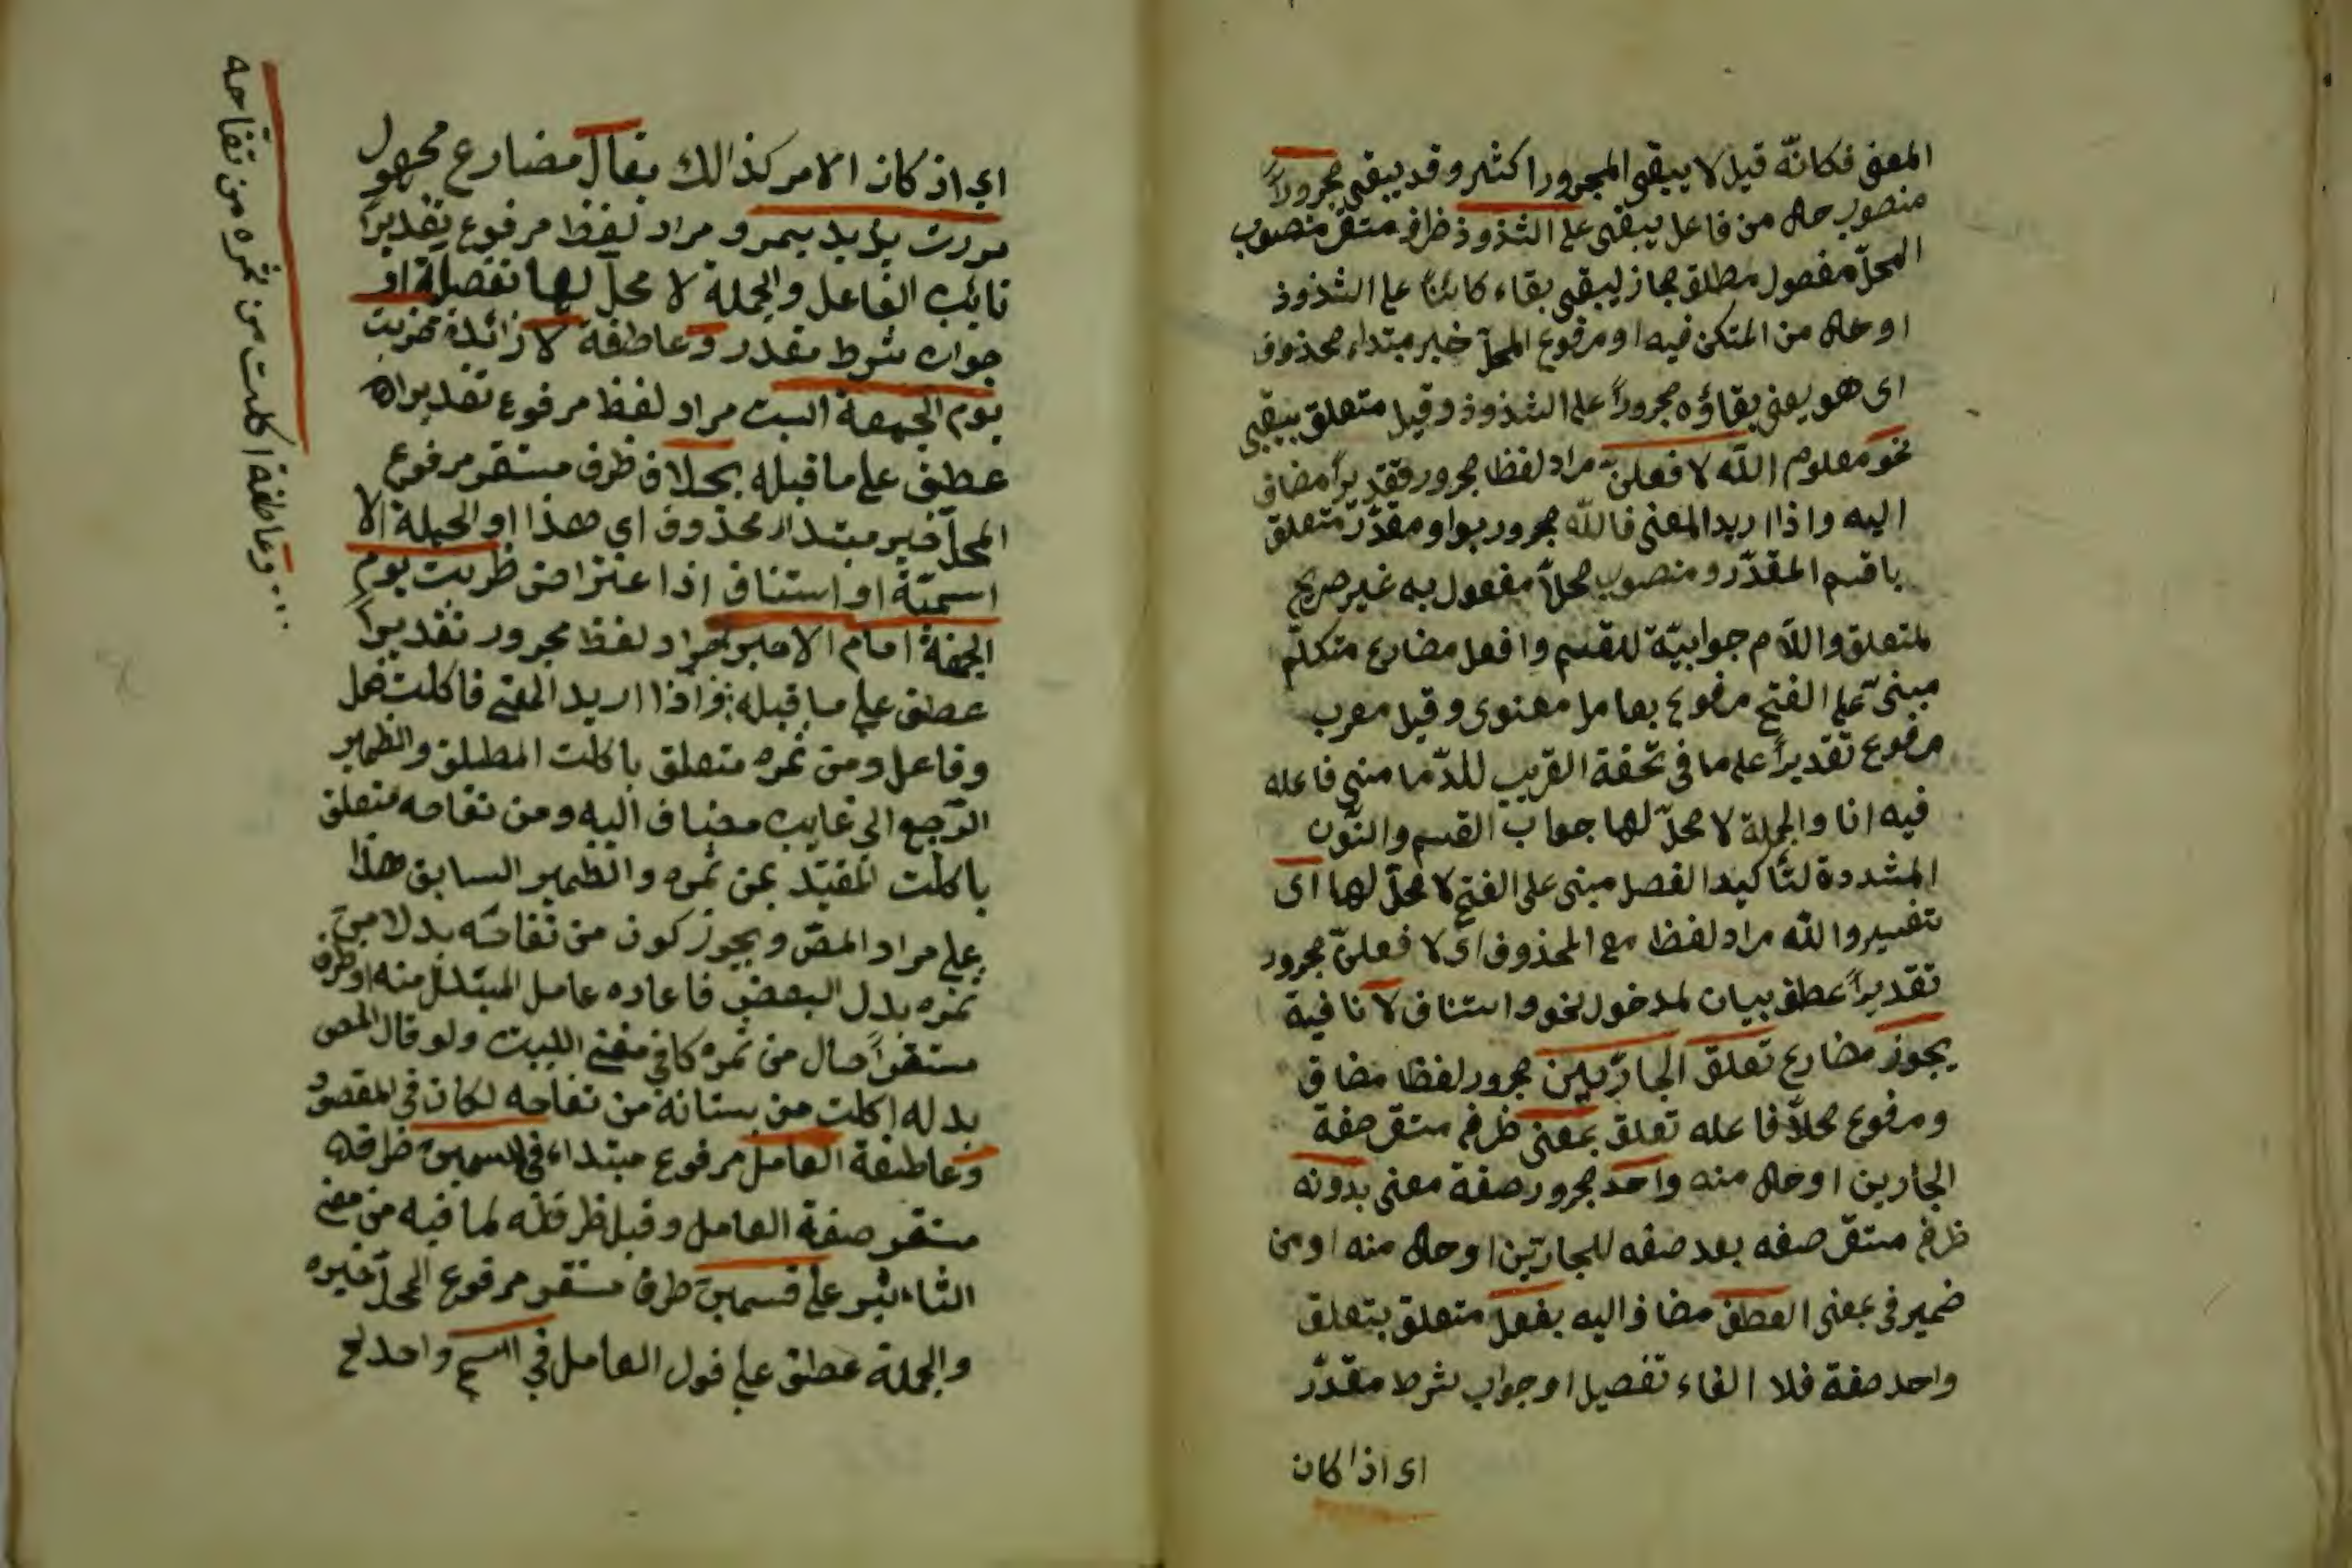 المعنى فكانّه قيل لا يبقى المجرورا كثير وقد يبقى مجروراً
منصوب حال من فاعل يبقى على الشذوذ ظرف مستقر منصوب
المحلّ مفعول مطلق مجاز ليبقى بقاء كائناً على الشذوذ
او حال من المتكن فيه او مرفوع المحلّ خبر مبتداء محذوف
اى هو يعنى بقاؤه مجروراً على الشذوذ وقيل متعلق بيبقى
نحو معلوم اللّه لا فعلنّ مراد لفظا مجرور تقديراً مضاف
اليه واذا اريد المعنى فاللّه مجرور بواو مقدّر متعلق
باقسم المقدّر ومنصوب محلاً مفعول به غير صريح
لمتعلق واللاّم جوابيّة للقسم وافعل مضارع متكلّم
مبنىّ على الفتح مرفوع بعامل معنوى وقيل معرب
مرفوع تقديراً على ما فى تحفة القريب للدّمامنى فاعله
فيه انا والجملة لا محلّ لها جواب القسم والنّون
المشددة لتأكيد الفصل مبنى على الفتح لا محلّ لها اى
تفسير واللّه مراد لفظا مع المحذوف اى لا فعلنّ مجرور
تقديراً عطف بيان لمدخول نحو واستناف لا نافية
يجوز مضارع تعلق الجارّين مجرور لفظا مضاف
ومرفوع محلاً فاعله تعلق بمعنى ظرف مستقر صفة
الجارين او حال منه واحد مجرور صفة معنى بدونه
ظرف مستقر صفه بعد صفه للجارّين او حال منه او من
ضمير فى بمعنى العطف مضاف اليه بفعل متعلق بتعلق
واحد صفة فلا الفاء تفصيل او جواب شرط مقدّر
اى اذا كان
اى اذ كان الامر كذالك يقال مضارع مجهول
مررت بزيد بعمرو مراد لفظ مرفوع تقديراً
نائب الفاعل والجملة لا محلّ لها تفصيلة او
جواب شرط مقدر وعاطفة لا زائدة ضربت
يوم الجمعة السبت مراد لفظ مرفوع تقديراً
عطف على ما قبله بخلاف ظرف مستقر مرفوع
المحلّ خبر مبتداء محذوف اى هذا او الجملة الا
اسميّة او استناف اذا عتراض ضربت يوم
الجمعة امام الامير مراد لفظ مجرور تقديراً
عطف على ما قبله واذا اريد المعنى فاكلت فعل
وفاعل ومن ثمره متعلق باكلت المطلق والظمير
الرّجع الى غايب مضاف اليه ومن تفاحه متعلق
باكلت المقيّد بمن ثمره والظمير السابق هذا
على مراد المصّ ويجوز كون من تفاحه بدلا من
ثمره بدل البعض فاعاده عامل المبتدل منه او ظرف
مستقراً حال من ثمره كا فى مغنى اللبيب ولو قال المص
بدله اكلت من بستانه من تفاحه لكان فى المقصود
وعاطفة العامل مرفوع مبتداء فى
مستقر صفة العامل وقيل ظرفله لما فيه من معنى
التاءثير على قسمين ظرف مستقر مرفوع المحلّ خبره
والجملة عطف على قول العامل فى اسم واحد لخ
وعاطفة اكلت من ثمره من تفاحه